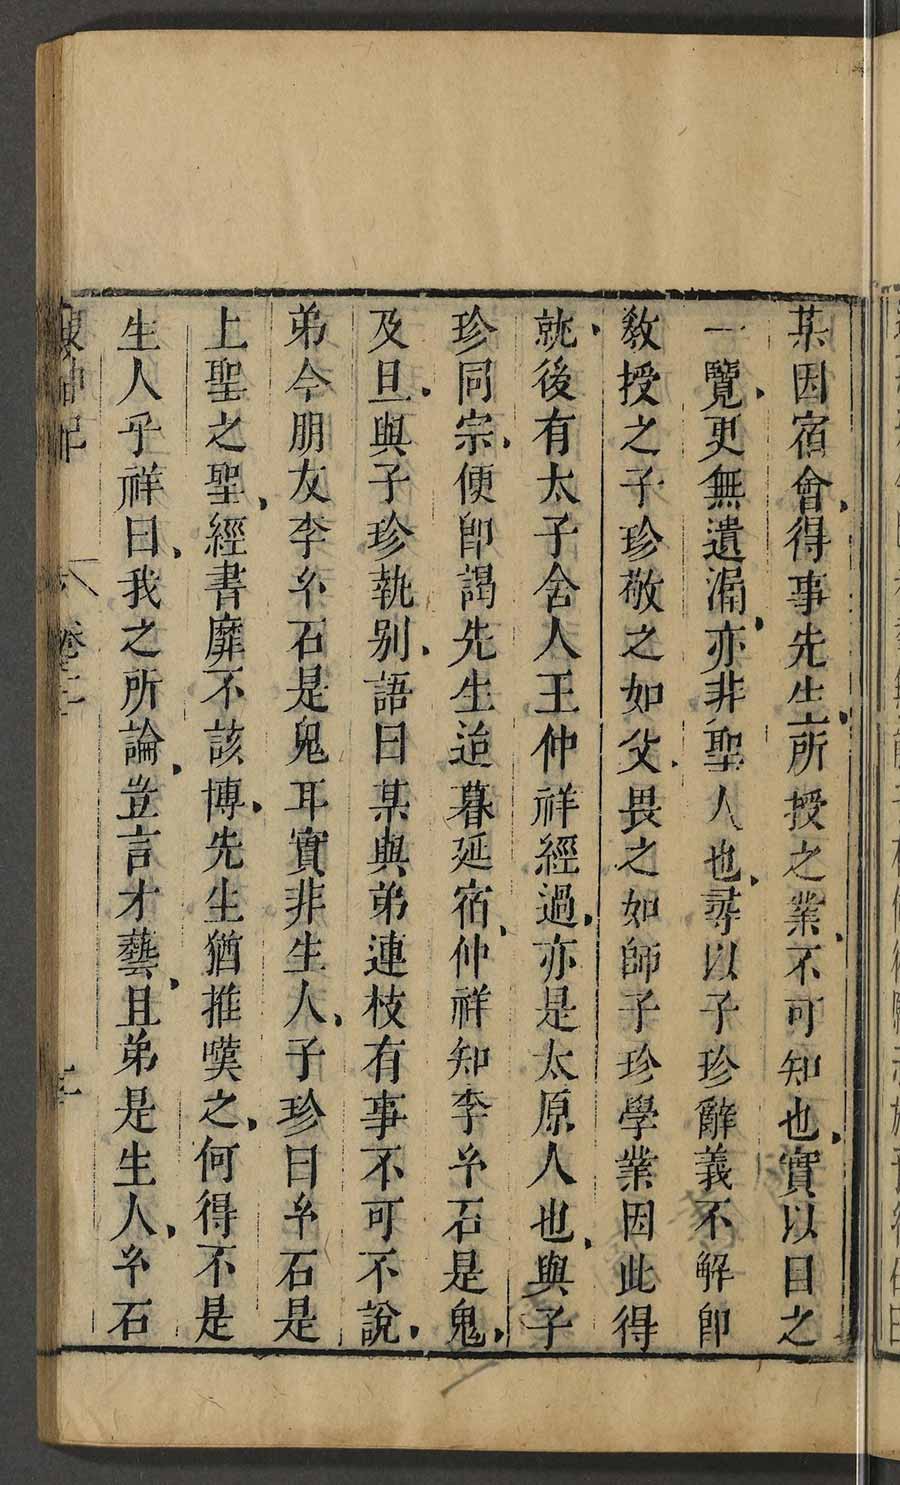 某因宿會得事先生所授之業不可知也實以目之
一覽更無遺漏亦非聖人也尋以子珍辭義不解即
教授之子珍敬之如父畏之如師子珍學業因此得
就後有太子舍人王仲祥經過亦是太原人也與子
珍同宗便即謁先生迨暮延宿仲祥知李𢆯石是鬼
及旦與子珍執别語曰某與弟連枝有事不可不說
弟今朋友李𢆯石是鬼耳實非生人子珍曰𢆯石是
上聖之聖經書靡不該博先生猶推嘆之何得不是
生人乎祥曰我之所論豈言才藝且弟是生人𢆯石
卷二